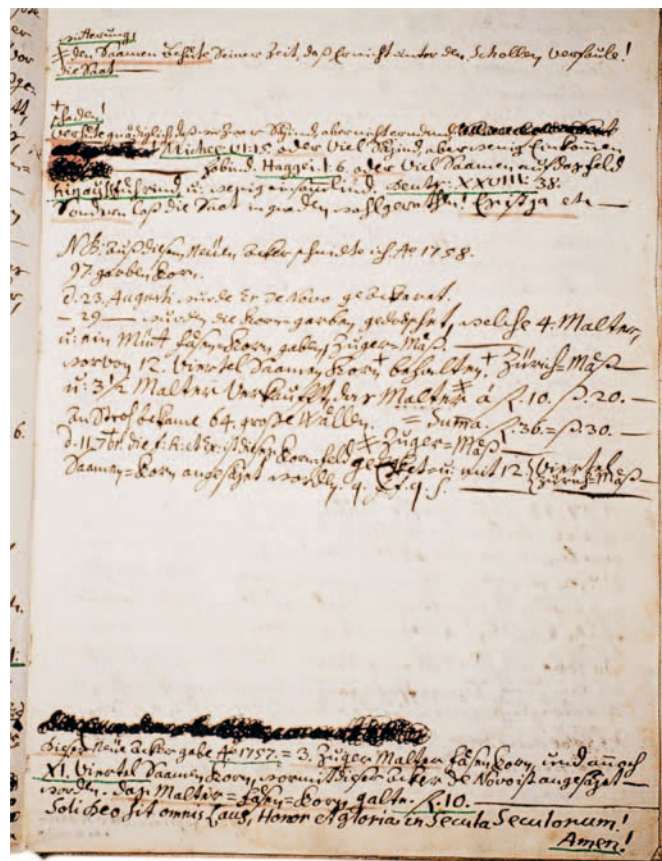 den Saamen behüte Seiner Zeit, daß Er nicht unter den Schollen verfaule!
die Saat
Schaden!
Verhüte gnädiglich, daß wir zwar Säjend, aber nicht erndend
Micheæ VI: 15. oder Viel Säjend, aber wenig Einkommen
habind. Haggei. I: 6. oder Viel Saamen auf das feld
hinausführind, u: wenig einsamlind. Deutr: XXVIII: 38.
Sondern laß die Saat in gnaden wohlgerathen! etc —
NB: auß disem Neüen acker schnidte ich Aº 1758.
97. garben Korn.
d. 23. Augusti wurde Er de Novo geackeret.
— 29 — wurden die Korn-garben gedröschet, welche 4. Malter,
u: ein Mütt fäsen-Korn gaben, Zuger-Mäß.
worvon 12. Viertel Saamen Korn behalten, Zürich-Mäß
u: 3½ Malter Verkaufft, das Malter à fl. 10. ß. 20. —
an Stroh bekame 64. große Wällen. = Suma. fl. 36. = ß. 30. —
Zuger = Mäß
d. 11. 7br. ist dises Kornfeld u: mit 12 Viertel
Saamen = Korn angesäjet worden. q. f. f. q. s. Zürich = Mäß
Diser Neüe acker gabe Aº 1757. = 3. Zuger Malter fäsen Korn, und annoch
XI. Viertel Saamen Korn, wormit diser acker de Novo ist angesäjet
worden. das Malter = fäsen = Korn galte. fl. 10.
Soli Deo sit omnis Laus, Honor et gloria in Secula Seculorum!
Amen!